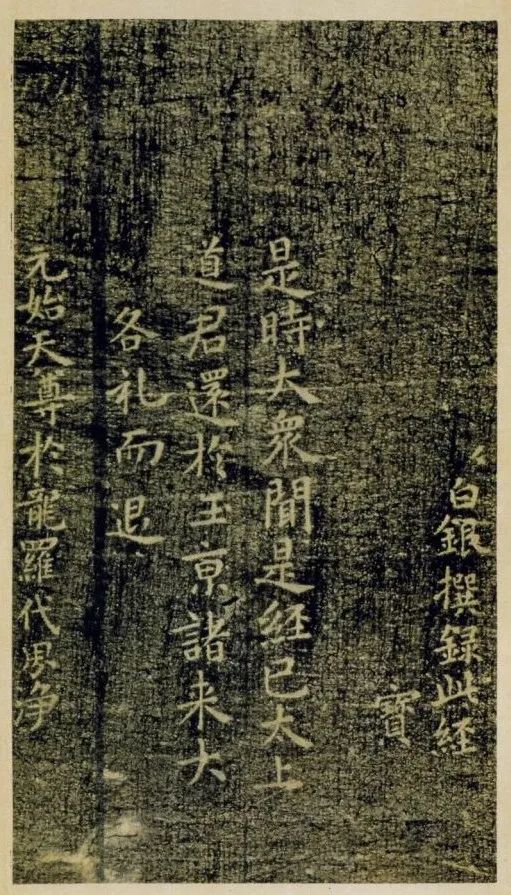 白銀撰録此経
寳
是時大衆聞是經已太上
道君還於玉京諸来大
各礼而退
元始天尊於龍羅代 淨